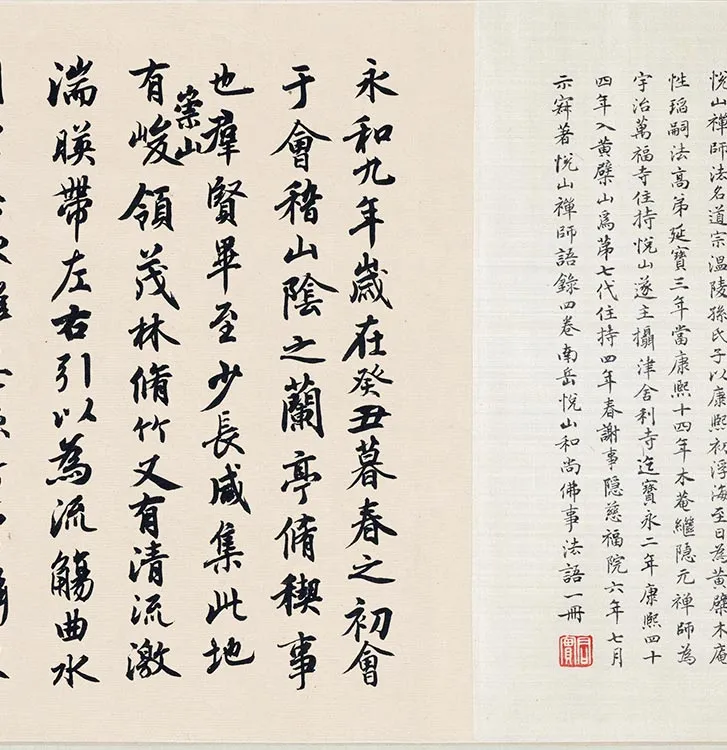 悅山禪師法名道宗溫陵孫氏子以康熙初浮海至日為黃檗木庵
性瑫嗣法高弟延寶三年當康熙十四年木菴繼隱元禪師為
宇治萬福寺住持悅山遂主攝津舍利寺迄寶永二年康熙四十
四年入黃檗山為第七代住持四年春謝事隱慈福院六年七月
示寂著悅山禪師語錄四卷南岳悅山和尚佛事法語一冊
永和九年歲在癸丑暮春之初會
于會稽山陰之蘭亭脩稧事
也羣賢畢至少長咸集此地
有崇山峻領茂林脩竹又有清流激
湍暎帶左右引以為流觴曲水